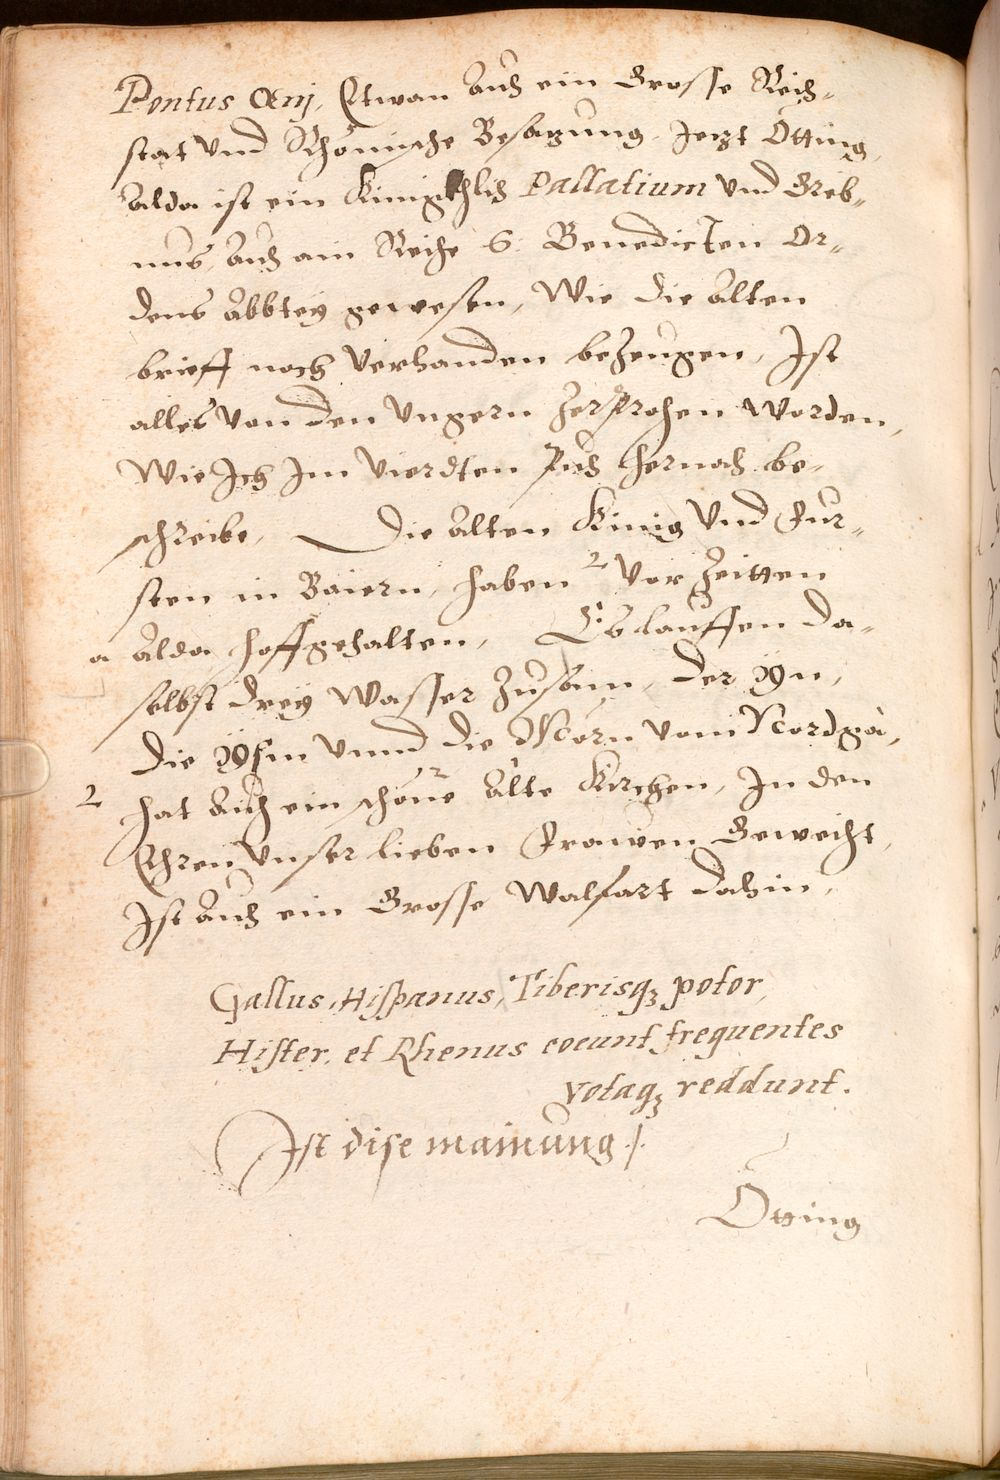 Pontus Œnj, Etwan auch ein Grosse Reich-
stat vnd Rhömische Besazung, Jezt Ötting,
alda ist ein Kiniglich Pallatium vnd Greb-
nus, auch ain Reiche S: Benedicten Or-
dens Abbtey gewesen, Wie die alten
brieff noch verhanden bezeugen, Ist
alles von den Vngern zerprohen worden,
Wie Ich Im vierdten Puch hernach be-
schreibe, Die alten Kinig vnd Für-
sten in Baiern, haben 2 vor Zeitten
a alda Hoffgehalten, Es lauffen da-
selbst drey Wasser zusam, der Yn,
die Ysm vnnd die Morn vom Nordgä,
2 hat auch ein schöne alte Kirchen, In den
Ehren vnser lieben Frawen Geweicht,
Ist auch ein Grosse Walfart dahin,
Gallus, Hispanus, Tiberisqz potor,
Hister, et Rhenus coeunt frequentes
votaqz reddunt.
Ist dise mainung ./.
Ötting